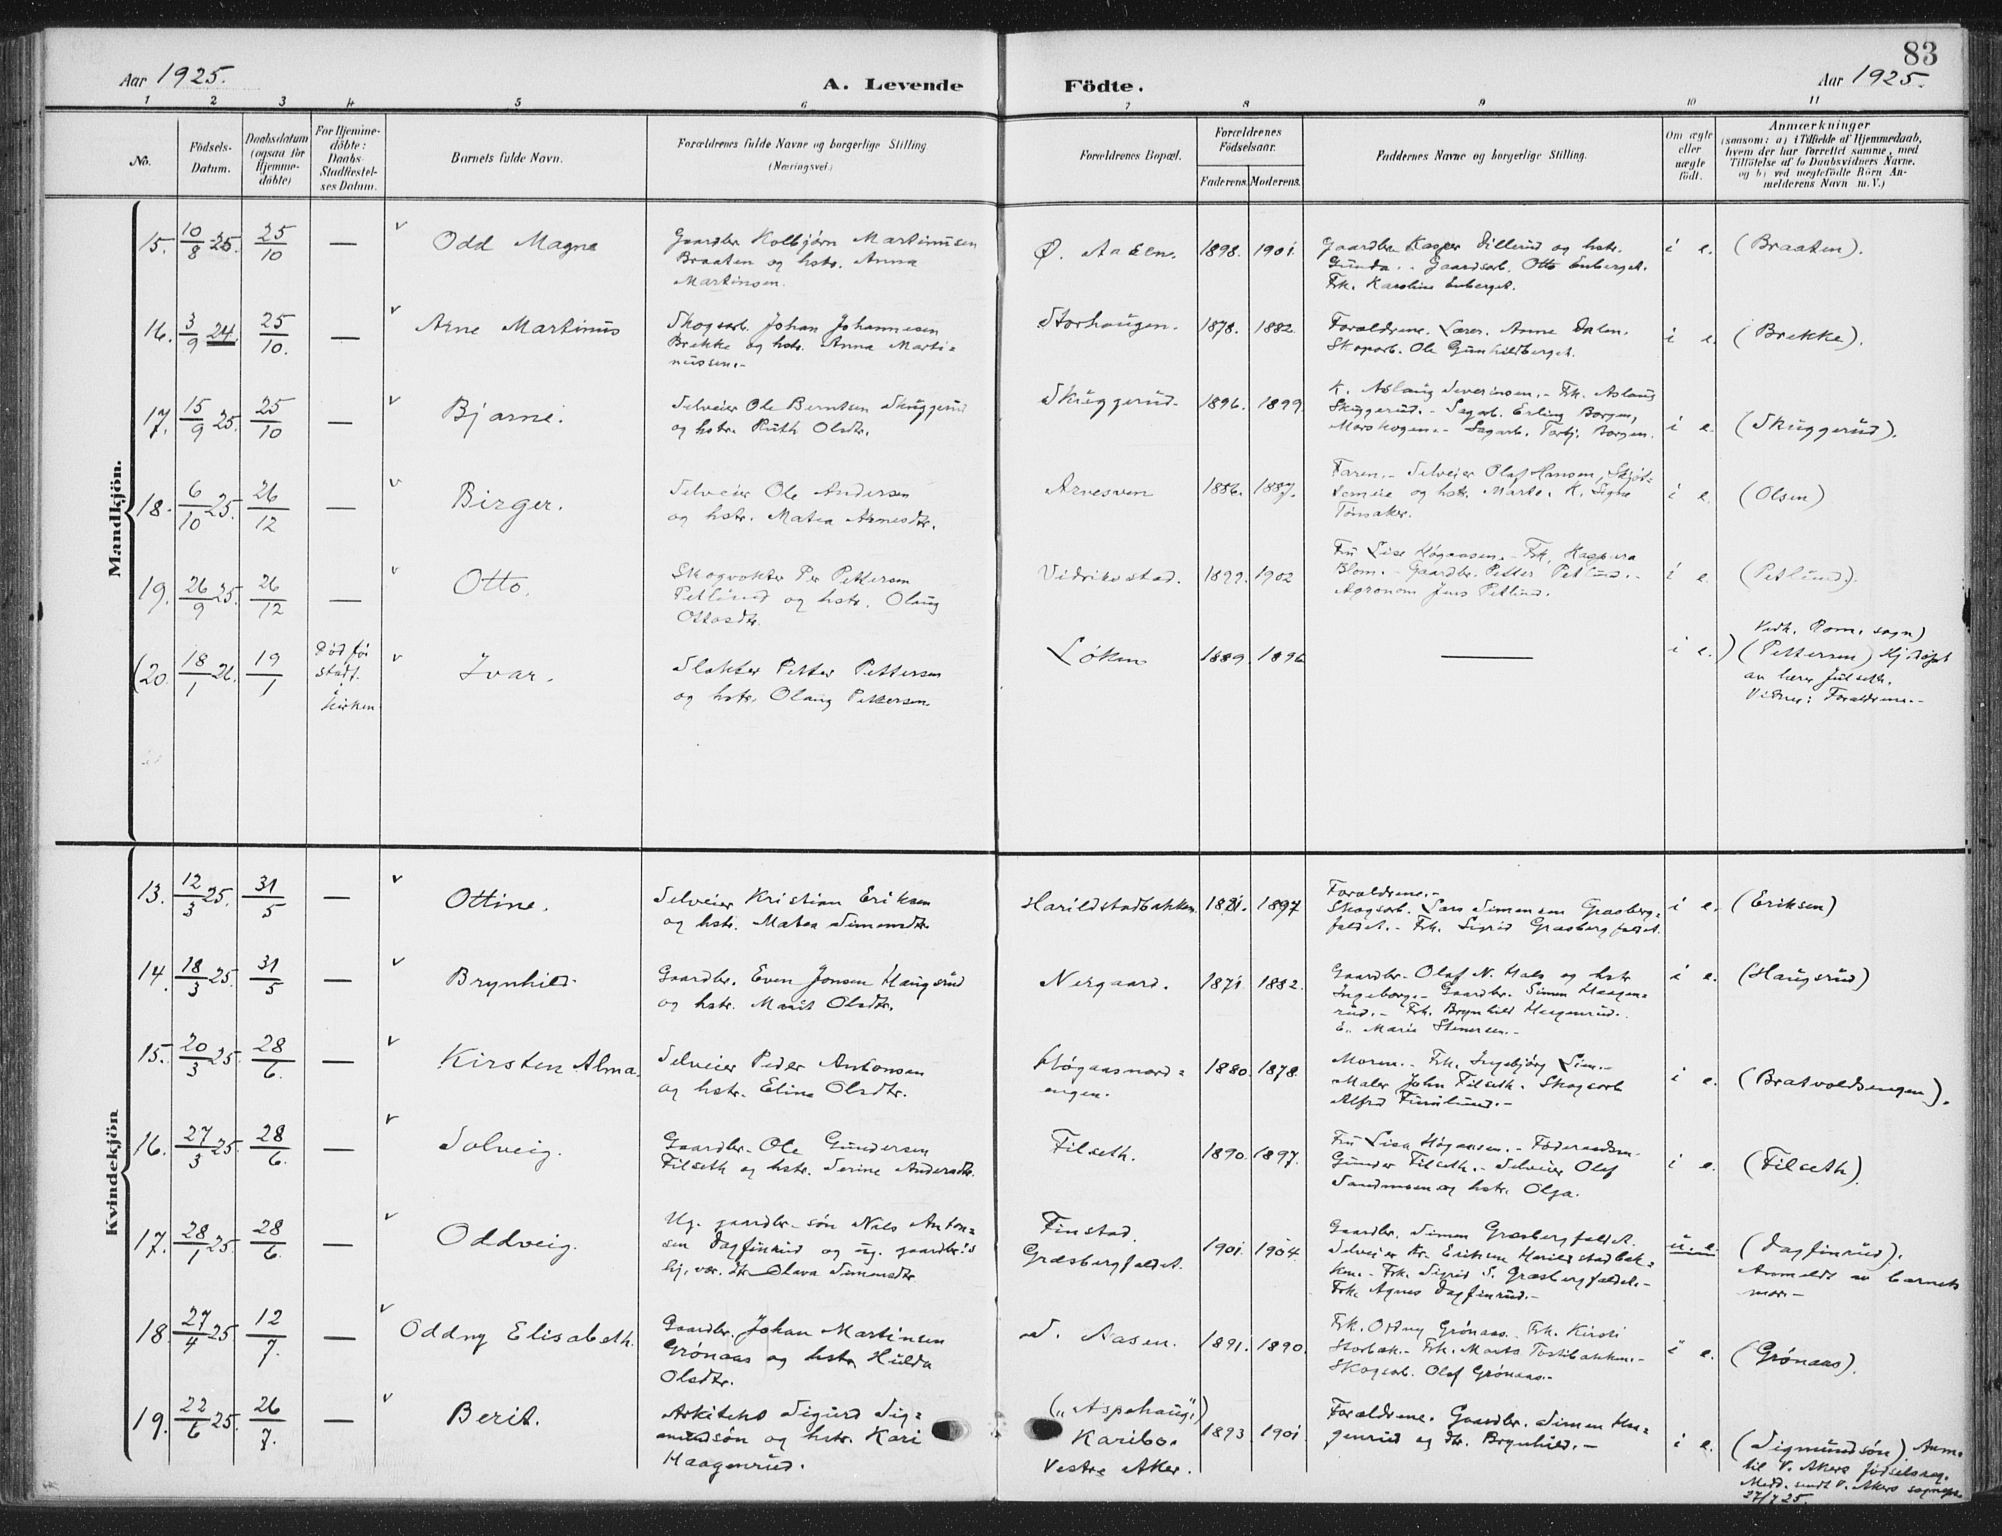 83
Aar 1925.
A. Levende Födte.
Aar 1925.
1 2 3 4 5 6 7 8 9 10 11
No.
Födsels-
Datum.
Daabsdatum
(ogsaa for
Hjemme-
döbte)
For Hjemme-
döbte:
Daabs-
Stadfæstel-
ses Datum.
Barnets fulde Navn.
Forældrenes fulde Navne og borgerlige Stilling
(Næringsvei.)
Forældrenes Bopæl.
Forældrenes
Födselsaar.
Faderens. Moderens.
Faddernes Navne og borgerlige Stilling.
Om ægte
eller
uægte
födt.
Anmærkninger
(saasom: a) i Tilfælde af Hjemmedaab,
hvem der har forrettet samme, med
Tilföielse af to Daabsvidners Navne,
og b) ved uægtefödte Börn An-
melderens Navn m. V.)
Mandkjön.
15. 10/8 25. 25/10 — v Odd Magne
Gaardbr. Kolbjørn Martinusen
Braaten og hstr. Anna
Martinsen.
Ø. Aasen. 1898. 1901.
Gaardbr. Kasper Dillerud og hstr.
Gunda. - Gaardsarb. Otto Enberget.
Frk. Karoline Enberget.
i e. (Braaten).
16. 3/9 24. 25/10. — v Arne Martinus
Skogsarb. Johan Johannesen
Brekke og hstr. Anna Marti=
nussen.-
Storhaugen. 1878. 1882.
Forældrene. Lærer. Anne Dalen.
Skogarb. Ole Gunhildberget.
i e. (Brekke).
17. 15/9 25. 25/10 — v Bjarne.
Selveier Ole Berntsen Skuggerud
og hstr. Ruth Olsdtr.
Skuggerud. 1896. 1899.
K. Aslaug Severinsen. - Frk. Aslaug
Skuggerud. - Sagarb. Erling Borgen,
Moroskogen. - Sagarb. Torbj. Borgen.
i e. (Skuggerud).
18. 6/10 25. 26/12 — v Birger.
Selveier Ole Andersen
og hstr. Matea Arnesdtr.
Arnesven 1886. 1887.
Faren. - Selveier Olaf Hansen,
og hstr. Marte. K. Signe
Tønsaker.
i e. (Olsen)
19. 26/9 25. 26/12 — v Otto.
Skogvokter Per Pettersen
Petlund og hstr. Olaug
Ottosdtr.
Vidrikstad. 1899. 1902
Fru Lise Høgaasen. - Frk. Kaspara
Blom. - Gaardbr. Petter Petlund. -
Agronom Jens Petlund.
i e. (Petlund).
(20. 18/1 26. 19/1 Død før
stadf.
i
kirken. v Ivar.
Slakter Petter Pettersen
og hstr. Olaug Pettersen.
Løken 1889. 1896 —
i e.) Vedk. Rom. sogn)
(Pettersen) Hj.døpt
av lærer Julseth.
Vidner: Forældrene.-
Kvindekjön
13. 12/3 25. 31/5 — v Ottine.
Selveier Kristian Eriksen
og hstr. Matea Simensdtr.
Harildstadbakken. 1881. 1897
Forældrene.-
Skogsarb. Lars Simensen Græsberg=
faldet. - Frk. Sigrid Græsbergfaldet.
i e. (Eriksen)
14. 18/3 25. 31/5 — v Brynhild.
Gaardbr. Even Jonsen Haugsrud
og hstr. Marit Olsdtr.
Nergaard. 1871. 1882.
Gaardbr. Olaf N. Hals og hstr
Ingeborg. - Gaardbr. Simen Haagen=
rud. - Frk. Brynhild Haagenrud.
E. Marie Stenersen.-
i e. (Haugsrud)
15. 20/3 25. 28/6. — v Kirsten Alma.
Selveier Peder Antonsen
og hstr. Eline Olsdtr.
Høgaasnord=
engen. 1880. 1878.
Moren. - Frk. Ingebjørg Lien.-
Maler John Filseth. Skogsarb
Alfred Furulund.-
i e. (Bratvoldsengen).
16. 27/3 25. 28/6. — v Solveig.
Gaardbr. Ole Gundersen
Filseth og hstr. Serine Andersdtr.
Filseth. 1890. 1897.
Fru Lisa Høgaasen. - Føderaadsm.
Gunder Filseth. - Selveier Olaf
Sandmoen og hstr. Olga.
i e. (Filseth).
17. 28/1 25. 28/6. — v Oddveig.
Ug. gaardbr.-søn Nils Anton=
sen Dagfinrud og ug. gaardbr.s
hj.vær. dtr. Olava Simensdtr.
Finstad.
Græsbergfaldet. 1901. 1904.
Gaardbr. Simen Græsbergfaldet.
Selveier Kr. Eriksen Harildstadbak=
ken. - Frk. Sigrid S. Græsbergfaldet.-
Frk. Agnes Dagfinrud.-
u. e. (Dagfinrud).
Anmeldt av barnets
mor.-
18 27/4 25 12/7. — v Oddny Elisabeth.
Gaardbr. Johan Martinsen
Grønaas og hstr. Hulda
Olsdtr.
S. Aasen. 1891. 1890.
Frk. Oddny Grønaas. Frk. Kirsti
Storbak. - Frk. Marta Tostibakken.-
Skogsarb. Olaf Grønaas.-
i e. (Grønaas).
19. 22/6 25. 26/7. — v Berit.
Arkitekt Sigurd Sig=
mundsøn og hstr. Kari
Haagenrud.
("Aspehaug",)
Karibo.
Vestre Aker. 1893. 1901.
Forældrene. Gaardbr. Simen Haa=
genrud og dtr. Brynhild.-
i e. (Sigmundsøn) Anm.
til V. Akers fødselsreg.
Medd. sendt V. Akers sognepr.
27/7 25.